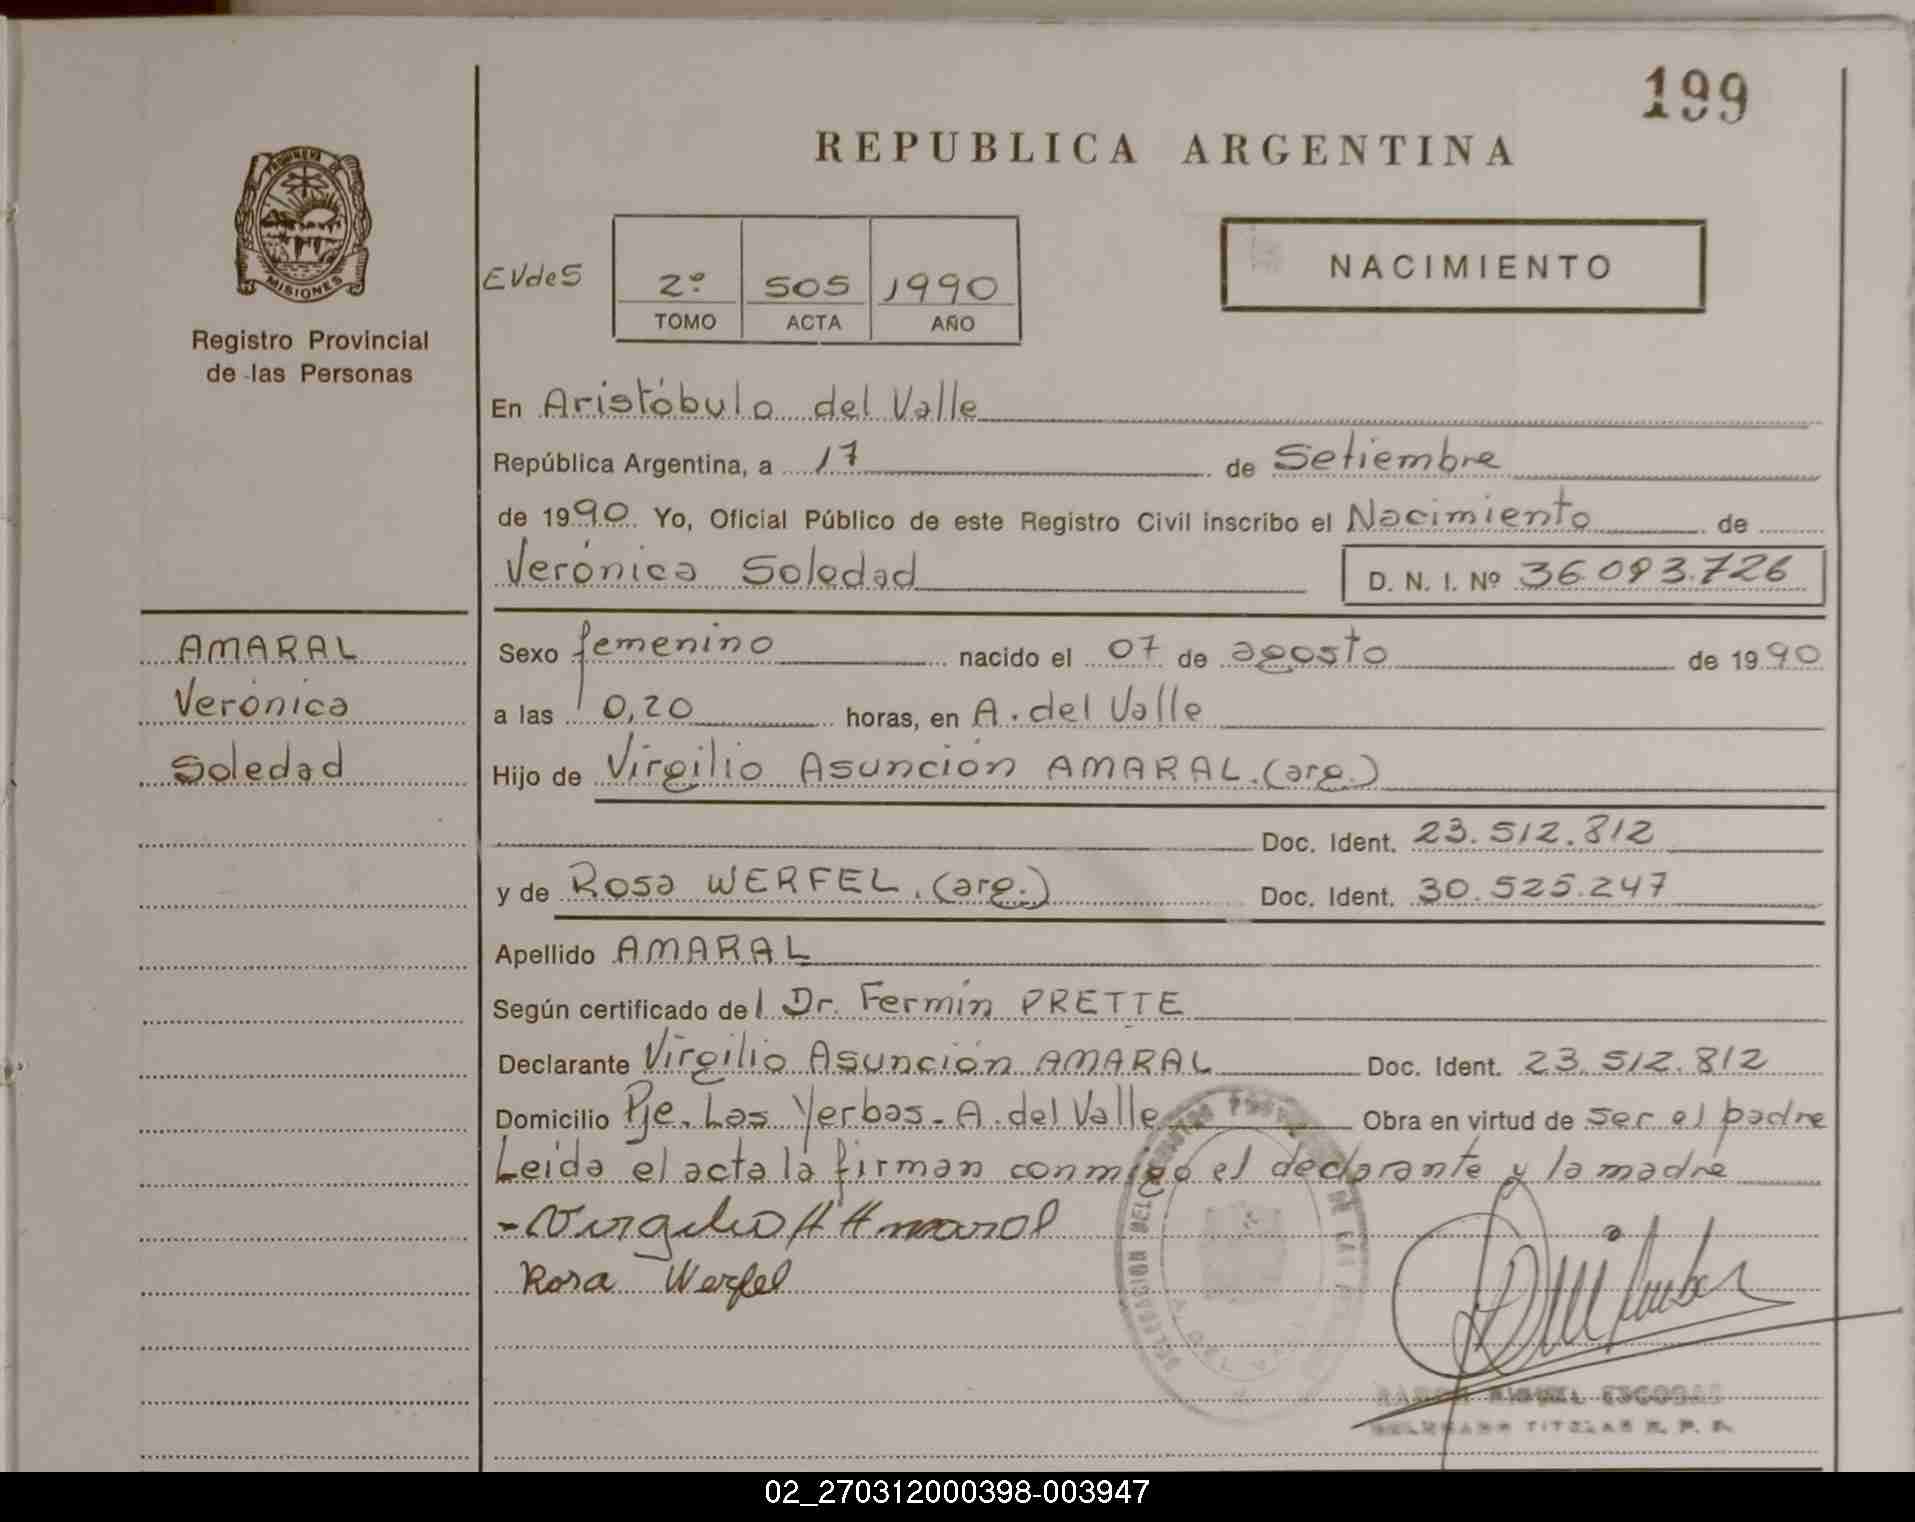 199
REPUBLICA ARGENTINA
PROVINCIA DE
MISIONES
Registro Provincial
de las Personas
NACIMIENTO
EVdeS
2º 505 1990
TOMO ACTA AÑO
En Aristóbulo del Valle
República Argentina, a 17 de Setiembre
de 1990 Yo, Oficial Público de este Registro Civil inscribo el Nacimiento de
Verónica Soledad D. N. I. Nº 36.093.726
AMARAL
Verónica
Soledad
Sexo femenino nacido el 07 de agosto de 1990
a las 0,20 horas, en A. del Valle
Hijo de Virgilio Asunción AMARAL.(arg.)
Doc. Ident. 23.512.812
y de Rosa WERFEL.(arg.) Doc. Ident. 30.525.247
Apellido AMARAL
Según certificado del Dr. Fermín PRETTE
Declarante Virgilio Asunción AMARAL Doc. Ident. 23.512.812
Domicilio Pje. Las Yerbas - A. del Valle Obra en virtud de ser el padre
Leida el acta la firman conmigo el declarante y la madre
- Virgilio A Amaral
Rosa Werfel
ESCOBAR
TITULAR R. P. P.
02_270312000398-003947